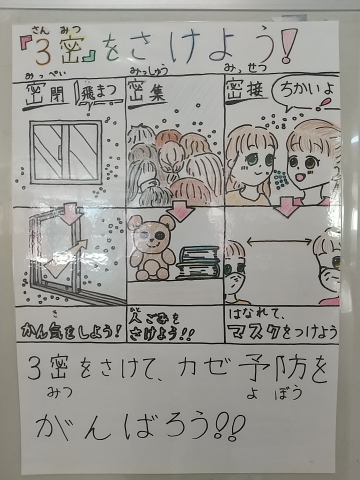 さん みつ
『3密』をさけよう!
みっぺい
密閉
飛まつ
みっしゅう
密集
みっせつ
密接
ちかいよ
き
かん気をしよう!
人ごみを
さけよう!!
はなれて、
マスクをつけよう
3密をさけて、カゼ予防を
みつ よぼう
がんばろう!!